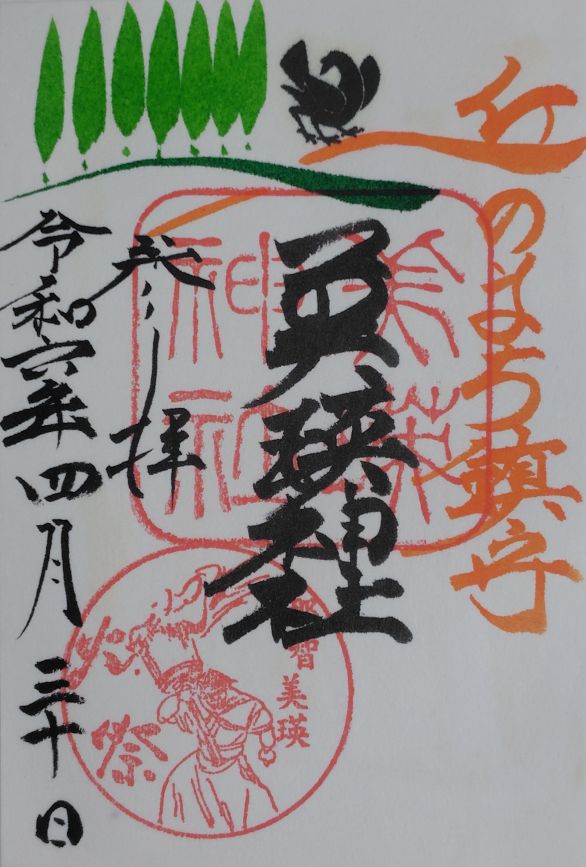 丘のまち鎮守
美瑛神社
奉拝
令和六年四月三十日
美瑛神社
那智美瑛
火祭